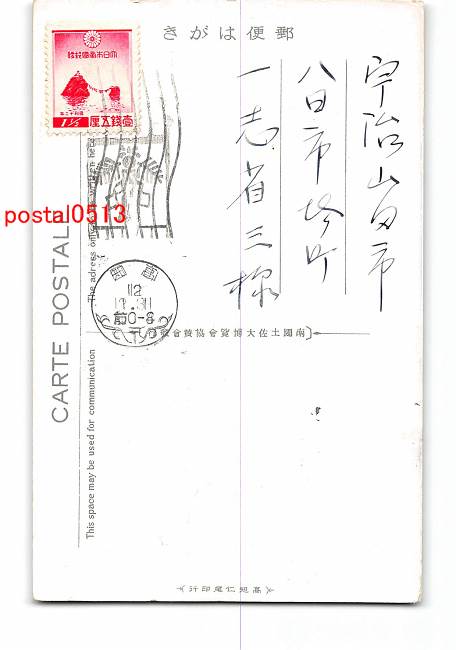 きがは便郵
宇治山田市
八日市場町
一志省三様
大日本帝国郵便
昭和十二年
1½ 壹銭五厘
postal0513
CARTE POSTALE
This space may be used for communication
The adress only
高知
12
前0-8
南國土佐大博覽會協賛會
高知仁尾印行